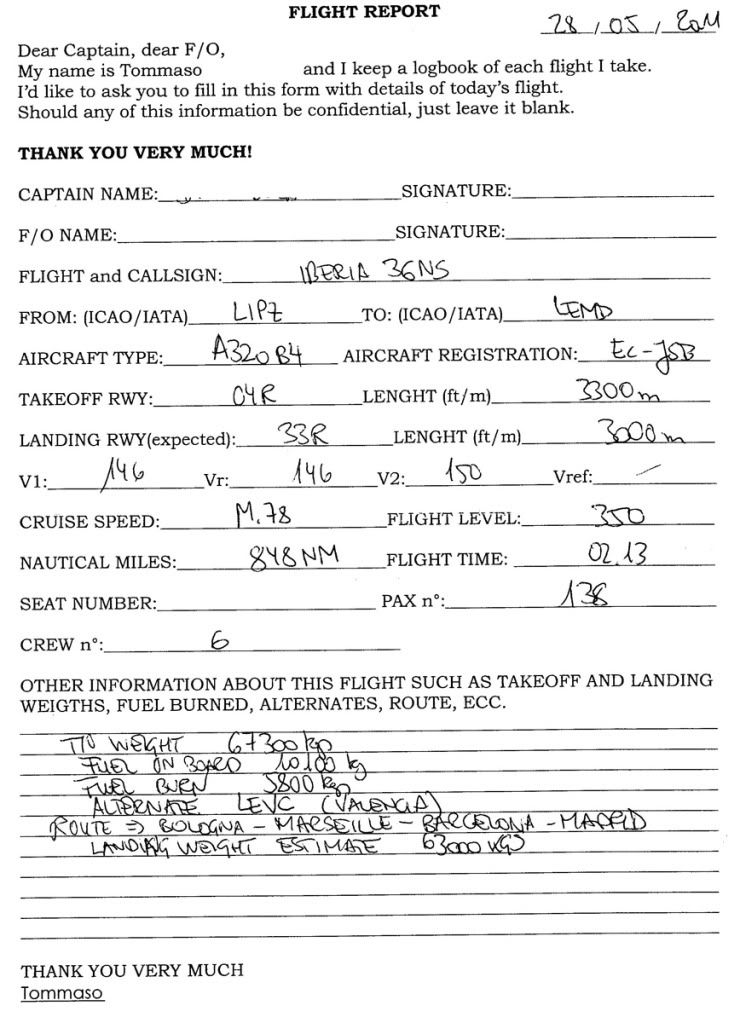 FLIGHT REPORT
28/05/2011
Dear Captain, dear F/O,
My name is Tommaso and I keep a logbook of each flight I take.
I'd like to ask you to fill in this form with details of today's flight.
Should any of this information be confidential, just leave it blank.
THANK YOU VERY MUCH!
CAPTAIN NAME: SIGNATURE:
F/O NAME: SIGNATURE:
FLIGHT and CALLSIGN: IBERIA 36NS
FROM: (ICAO/IATA) LIPZ TO: (ICAO/IATA) LEMD
AIRCRAFT TYPE: A320 B4 AIRCRAFT REGISTRATION: EC-JSB
TAKEOFF RWY: 04R LENGHT (ft/m) 3300m
LANDING RWY(expected): 33R LENGHT (ft/m) 3000m
V1: 146 Vr: 146 V2: 150 Vref: /
CRUISE SPEED: M.78 FLIGHT LEVEL: 350
NAUTICAL MILES: 848 NM FLIGHT TIME: 02.13
SEAT NUMBER: PAX n°: 138
CREW n°: 6
OTHER INFORMATION ABOUT THIS FLIGHT SUCH AS TAKEOFF AND LANDING
WEIGTHS, FUEL BURNED, ALTERNATES, ROUTE, ECC.
T/O WEIGHT 67300 kg
FUEL ON BOARD 10100 kg
FUEL BURN 5800 kg
ALTERNATE LEVC (VALENCIA)
ROUTE => BOLOGNA - MARSEILLE - BARCELONA - MADRID
LANDING WEIGHT ESTIMATE 63000 KGS
THANK YOU VERY MUCH
Tommaso